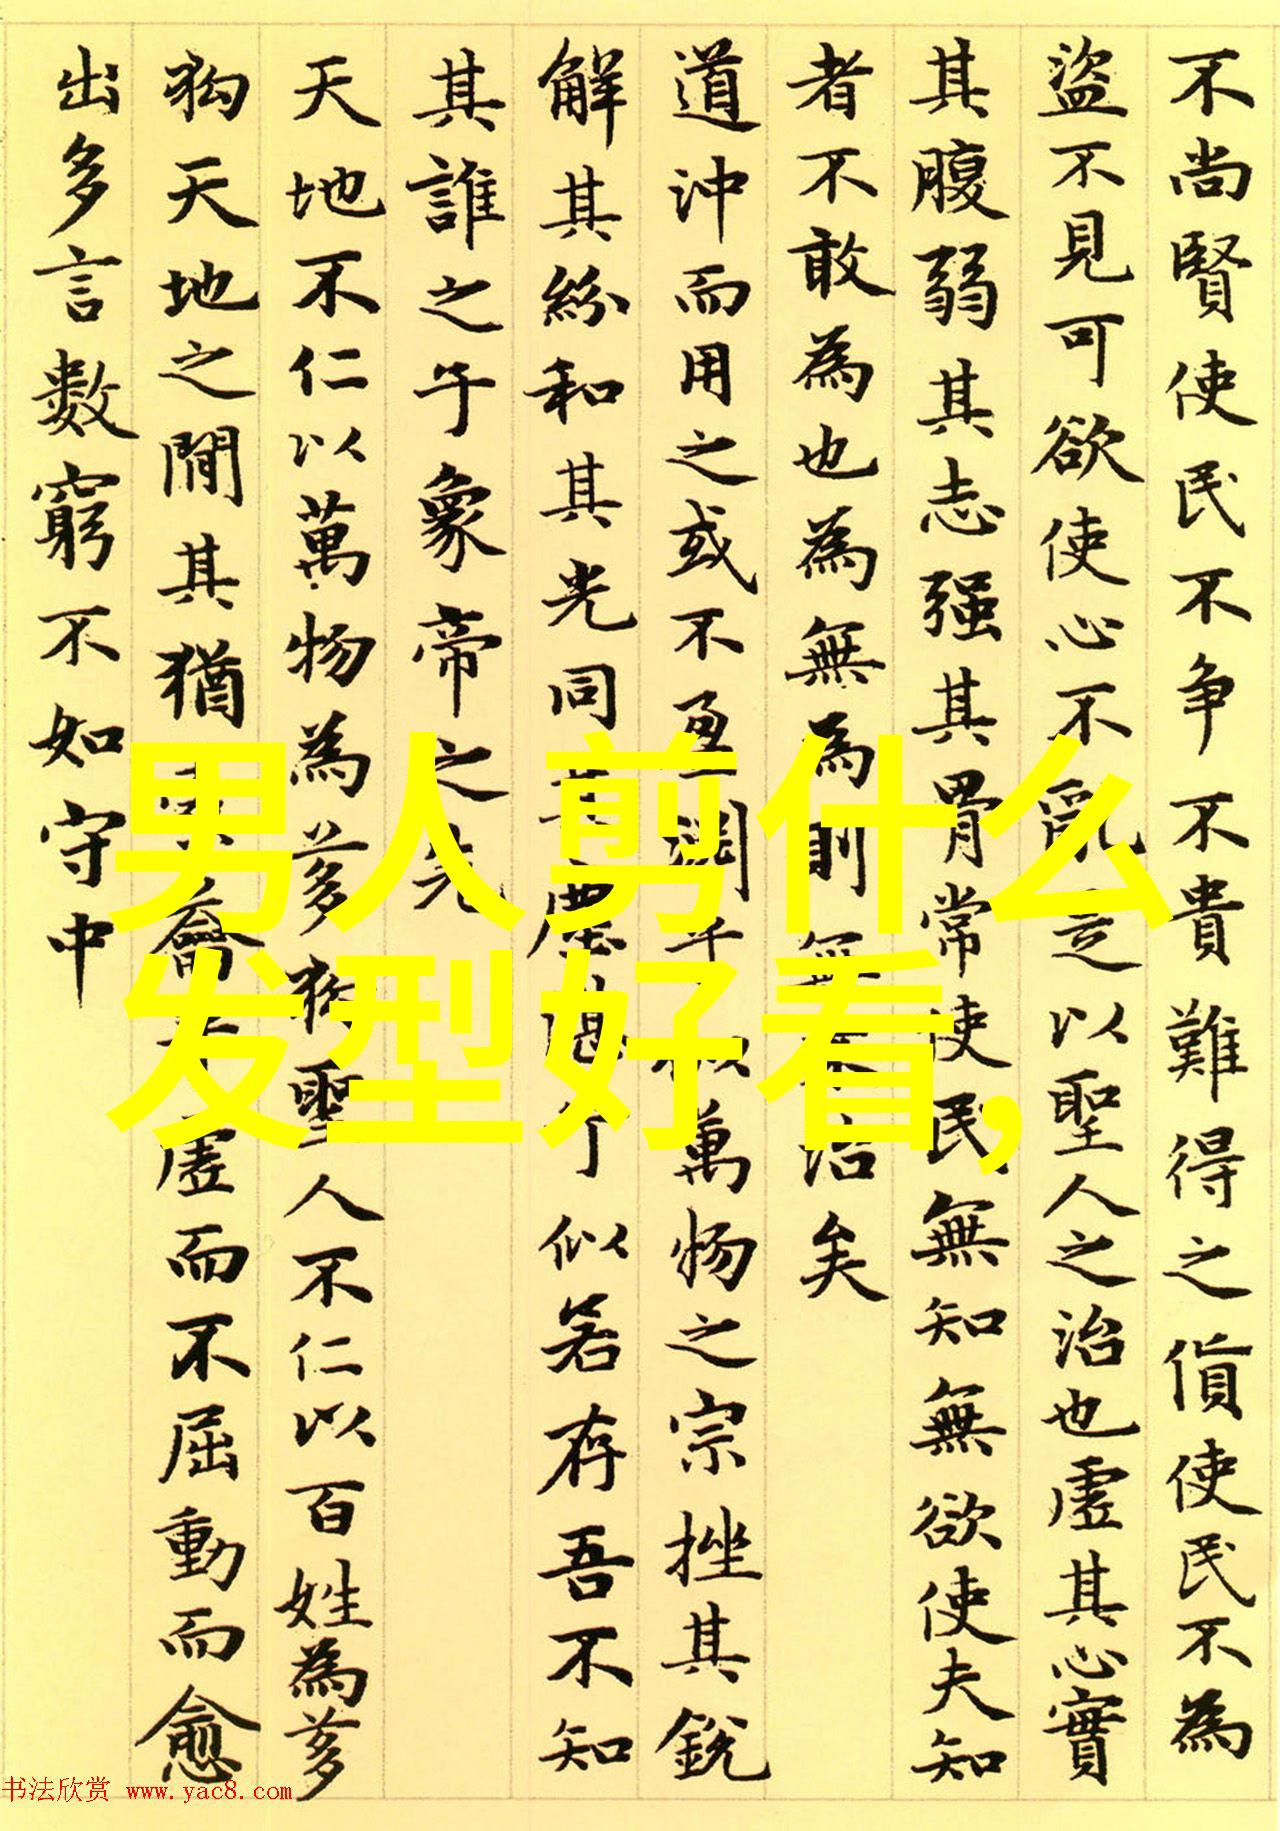 不尚賢使民不争不貴難得之貨使民不為
盜不見可欲使心不亂是以聖人之治也虛其心實
其腹弱其志强其骨常使民無知無欲使夫知
者不敢為也為無為則無不治矣
道沖而用之或不盈淵乎似萬物之宗挫其銳
解其紛和其光同其塵湛兮似若存吾不知
其誰之子象帝之先
天地不仁以萬物為芻狗聖人不仁以百姓為芻
狗天地之閒其猶橐龠乎虛而不屈動而愈
出多言數窮不如守中
男人剪什么
发型好看,
书法欣赏 www.yac8.com